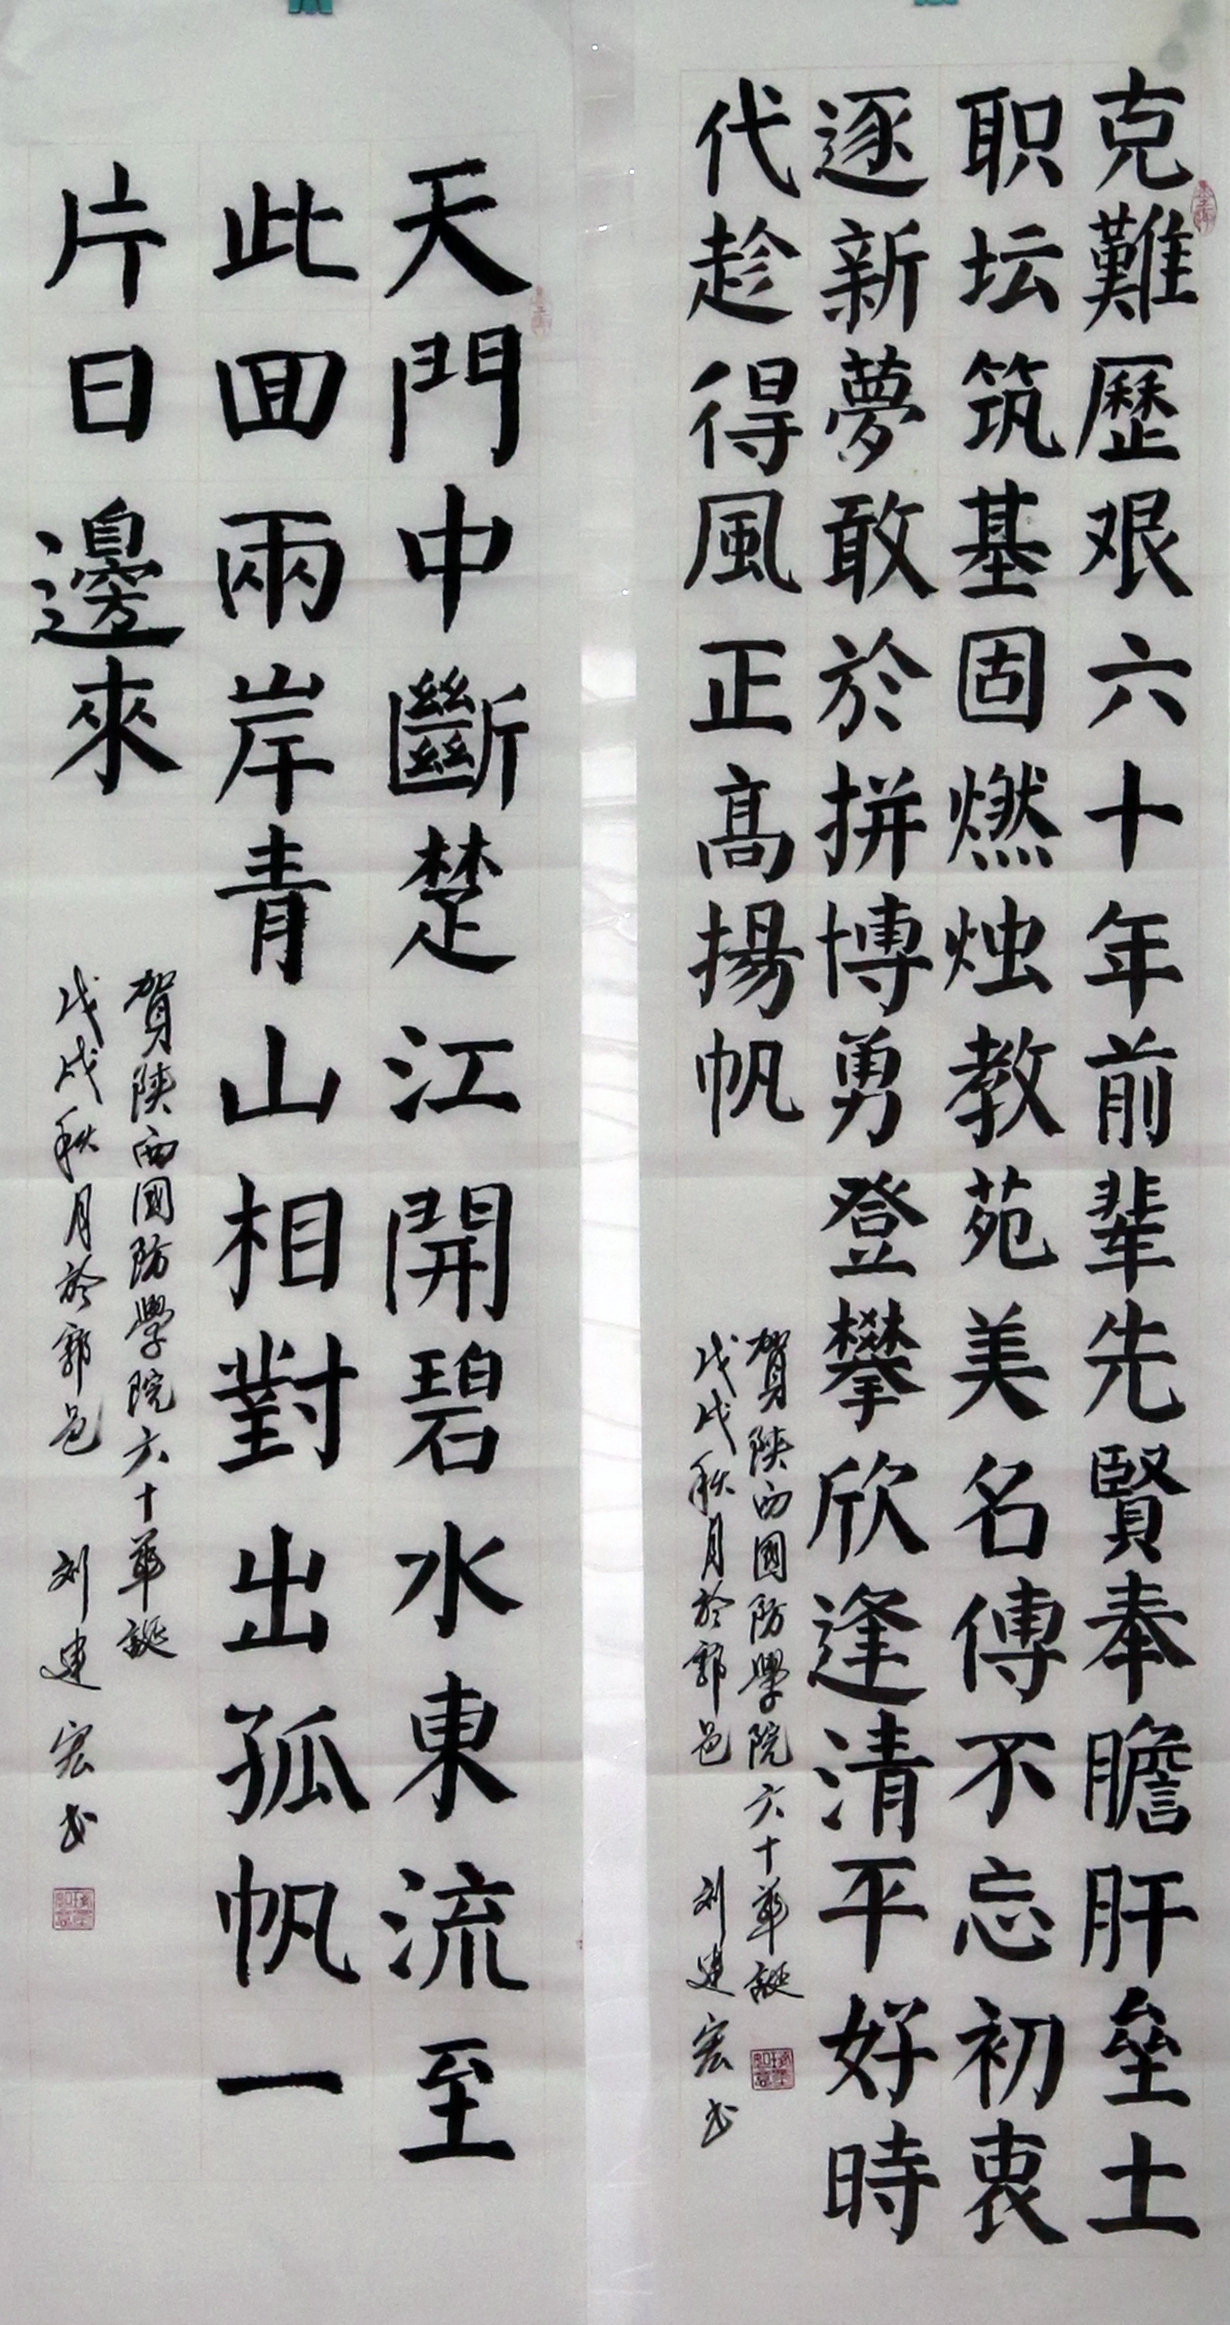 克難歷艰六十年前辈先賢奉膽肝垒土
职坛筑基固燃烛教苑美名傳不忘初衷
逐新夢敢於拼博勇登攀欣逢清平好時
代趁得風正高揚帆
賀陕西國防學院六十華誕
戊戌秋月於鄠邑 刘建宏书
天門中斷楚江開碧水東流至
此回兩岸青山相對出孤帆一
片日邊來
賀陕西國防學院六十華誕
戊戌秋月於鄠邑 刘建宏书